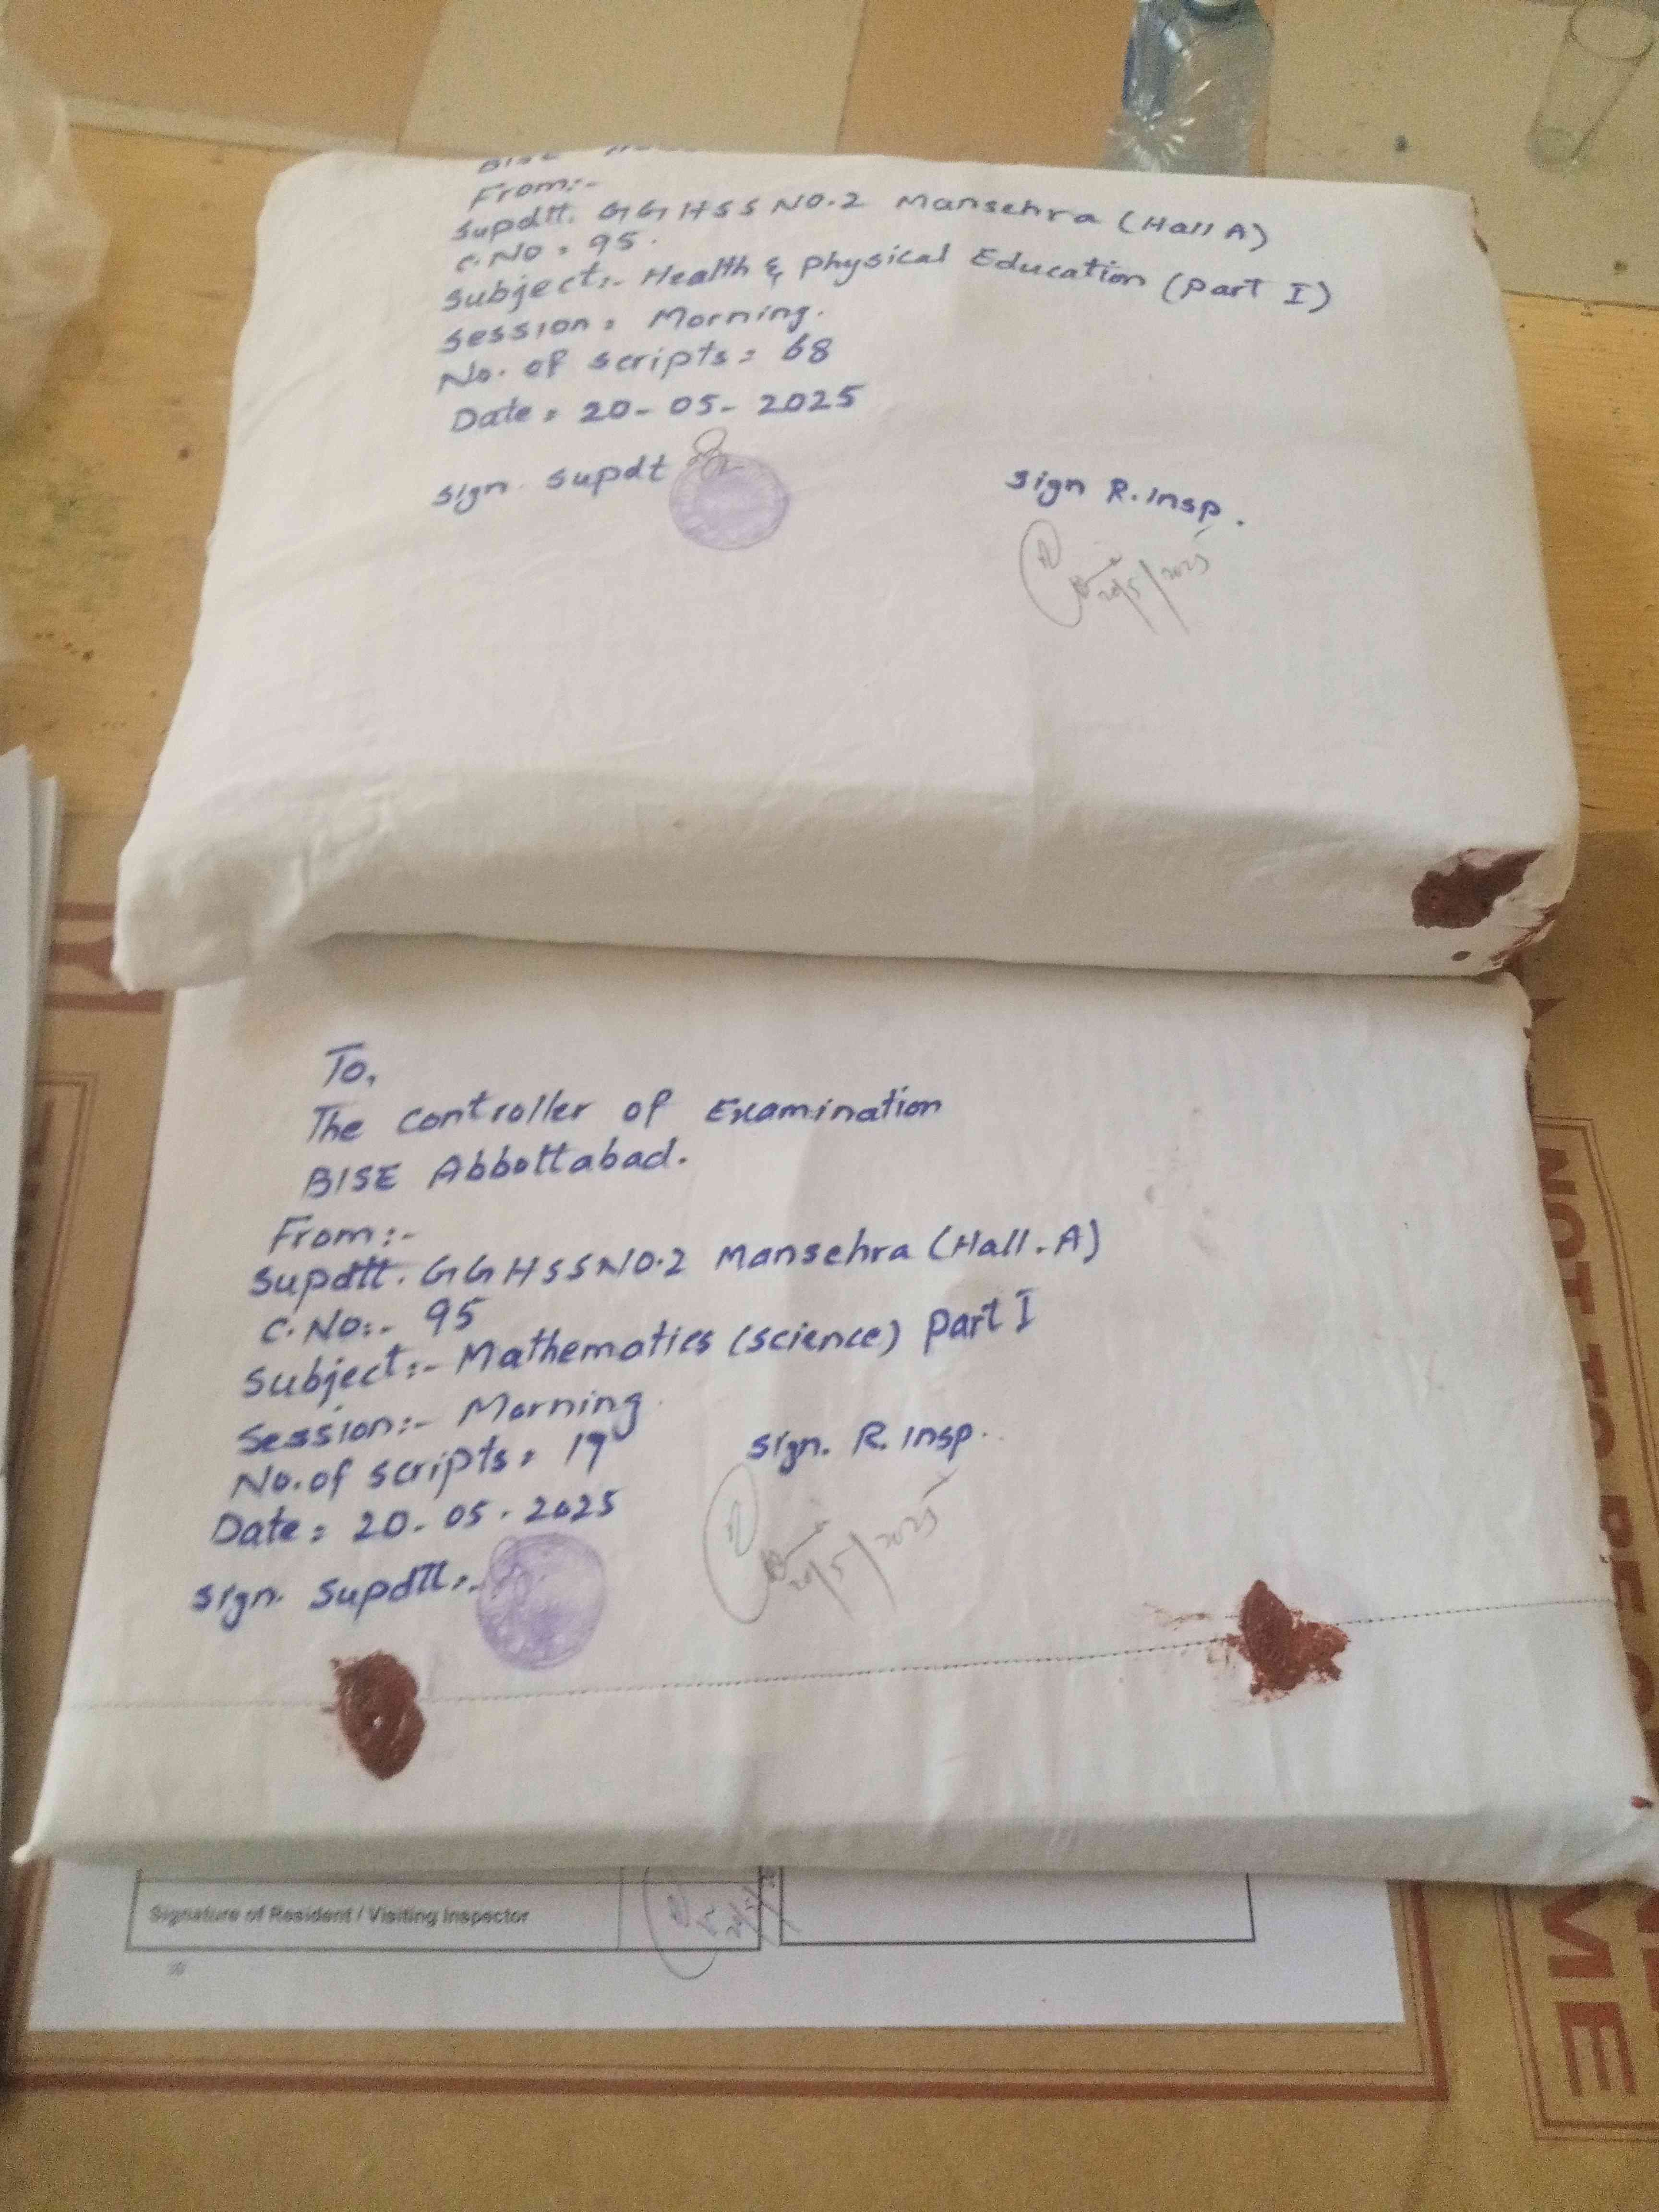 BISE
From:-
Supdtt. GGHSS NO.2 Mansehra (Hall A)
C.No = 95.
Subject:- Health & Physical Education (Part I)
Session = Morning.
No. of scripts = 68
Date = 20-05-2025
Sign. Supdt
Sign R.Insp.
20/5/2025
To,
The Controller of Examination
BISE Abbottabad.
From:-
Supdtt. GGHSSNO.2 Mansehra (Hall.A)
C.No:- 95
Subject:- Mathematics (Science) Part I
Session:- Morning.
No.of scripts = 19
Sign. R. Insp..
Date = 20-05-2025
20/5/2025
Sign. Supdtt:-
Signature of Resident / Visiting Inspector
NOT TO BE
ME